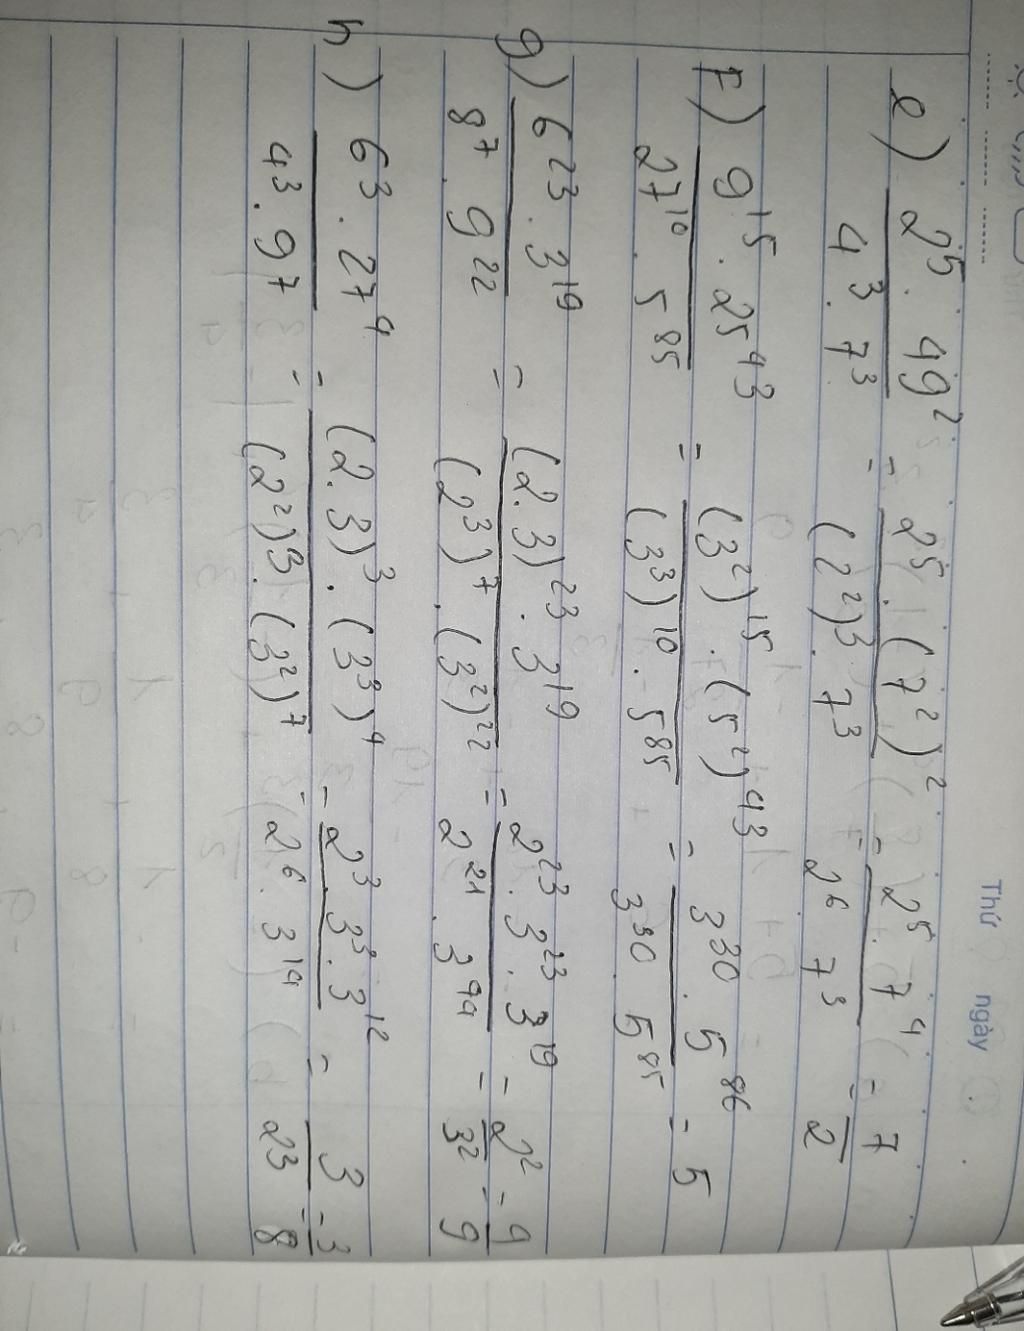 Thứ ngày
e) 2⁵ . 49² / 4³ . 7³ = 2⁵ . (7²)² / (2²)³ . 7³ = 2⁵ . 7⁴ / 2⁶ 7³ = 7 / 2
F) 9¹⁵ . 25⁴³ / 27¹⁰ . 5⁸⁵ = (3²)¹⁵ . (5²)⁴³ / (3³)¹⁰ . 5⁸⁵ = 3³⁰ . 5⁸⁶ / 3³⁰ . 5⁸⁵ = 5
g) 6²³ . 3¹⁹ / 8⁷ . 9²² = (2.3)²³ . 3¹⁹ / (2³)⁷ . (3²)²² = 2²³ . 3²³ . 3¹⁹ / 2²¹ . 3⁴⁴ = 2² / 3² = 4 / 9
h) 6³ . 27⁴ / 4³ . 9⁷ = (2.3)³ . (3³)⁴ / (2²)³ . (3²)⁷ = 2³ 3³ . 3¹² / 2⁶ . 3¹⁴ = 3 / 2³ = 3 / 8